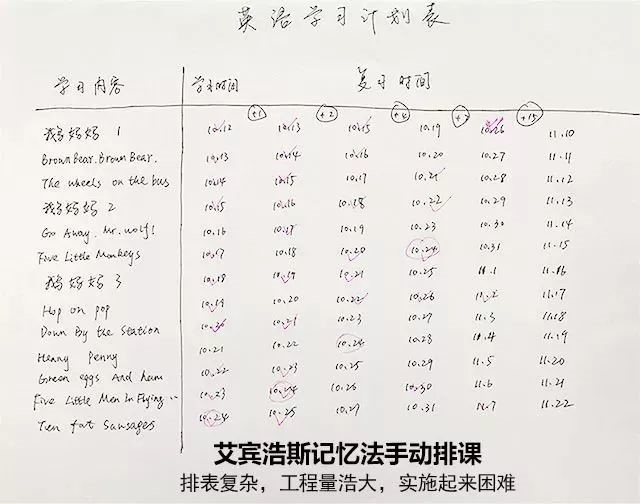 英语学习计划表
学习内容 学习时间 复习时间
+1 +2 +4 +7 +15
鹅妈妈 1 10.12 10.13 10.15 10.19 10.26 11.10
Brown Bear. Brown Bear. 10.13 10.14 10.16 10.20 10.27 11.11
The wheels on the bus 10.14 10.15 10.17 10.21 10.28 11.12
鹅妈妈 2 10.15 10.16 10.18 10.22 10.29 11.13
Go Away. Mr. wolf! 10.16 10.17 10.19 10.23 10.30 11.14
Five Little Monkeys 10.17 10.18 10.20 10.24 10.31 11.15
鹅妈妈 3 10.18 10.19 10.21 10.25 11.1 11.16
Hop on pop 10.19 10.20 10.22 10.26 11.2 11.17
Down By the Station 10.20 10.21 10.23 10.27 11.3 11.18
Henny Penny 10.21 10.22 10.24 10.28 11.4 11.19
Green eggs And ham 10.22 10.23 10.25 10.29 11.5 11.20
Five Little Men In Flying ·· 10.23 10.24 10.26 10.30 11.6 11.21
Ten fat Sausages 10.24 10.25 10.27 10.31 11.7 11.22
艾宾浩斯记忆法手动排课
排表复杂，工程量浩大，实施起来困难